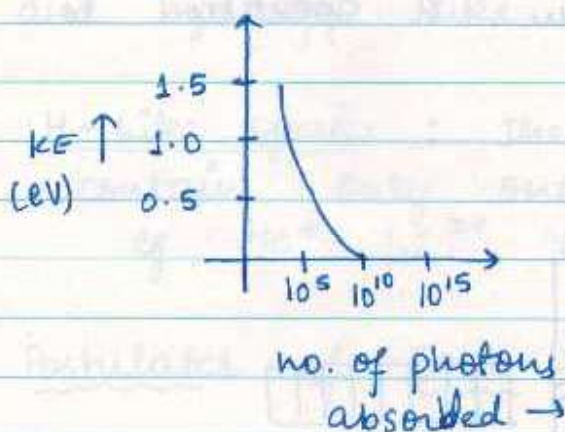 1.5
KE ↑ 1.0
(eV) 0.5
10⁵ 10¹⁰ 10¹⁵
no. of photons
absorbed →